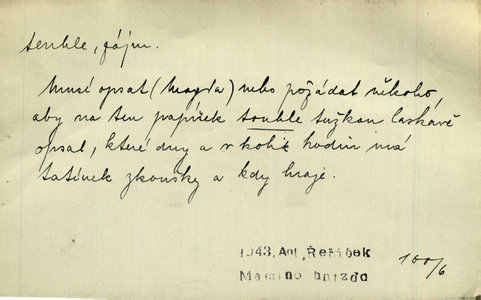 tenhle, zájm.
Musí opsat (Magda) nebo požádat někoho,
aby na ten papírek touhle tužkou laskavě
opsal, které dny a v kolik hodin má
tatínek zkoušky a kdy hraje.
1943, Ant. Řeřábek
Mámino hnízdo
100/6